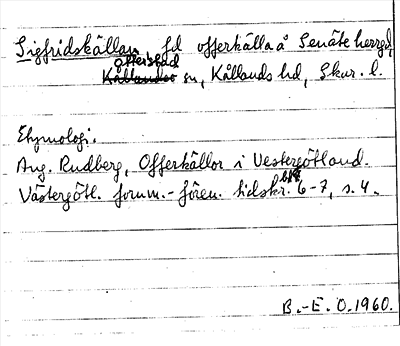 Sigfridskällan fd offerkälla å Senäte herrgd,
Otterstad
Kållands sn, Kållands hd, Skar. l.
Etymologi.
Aug. Rudberg, Offerkällor i Vestergötland.
Västergötl. fornm.-fören. tidskr. 6-7, s. 4.
B.-E. O. 1960.